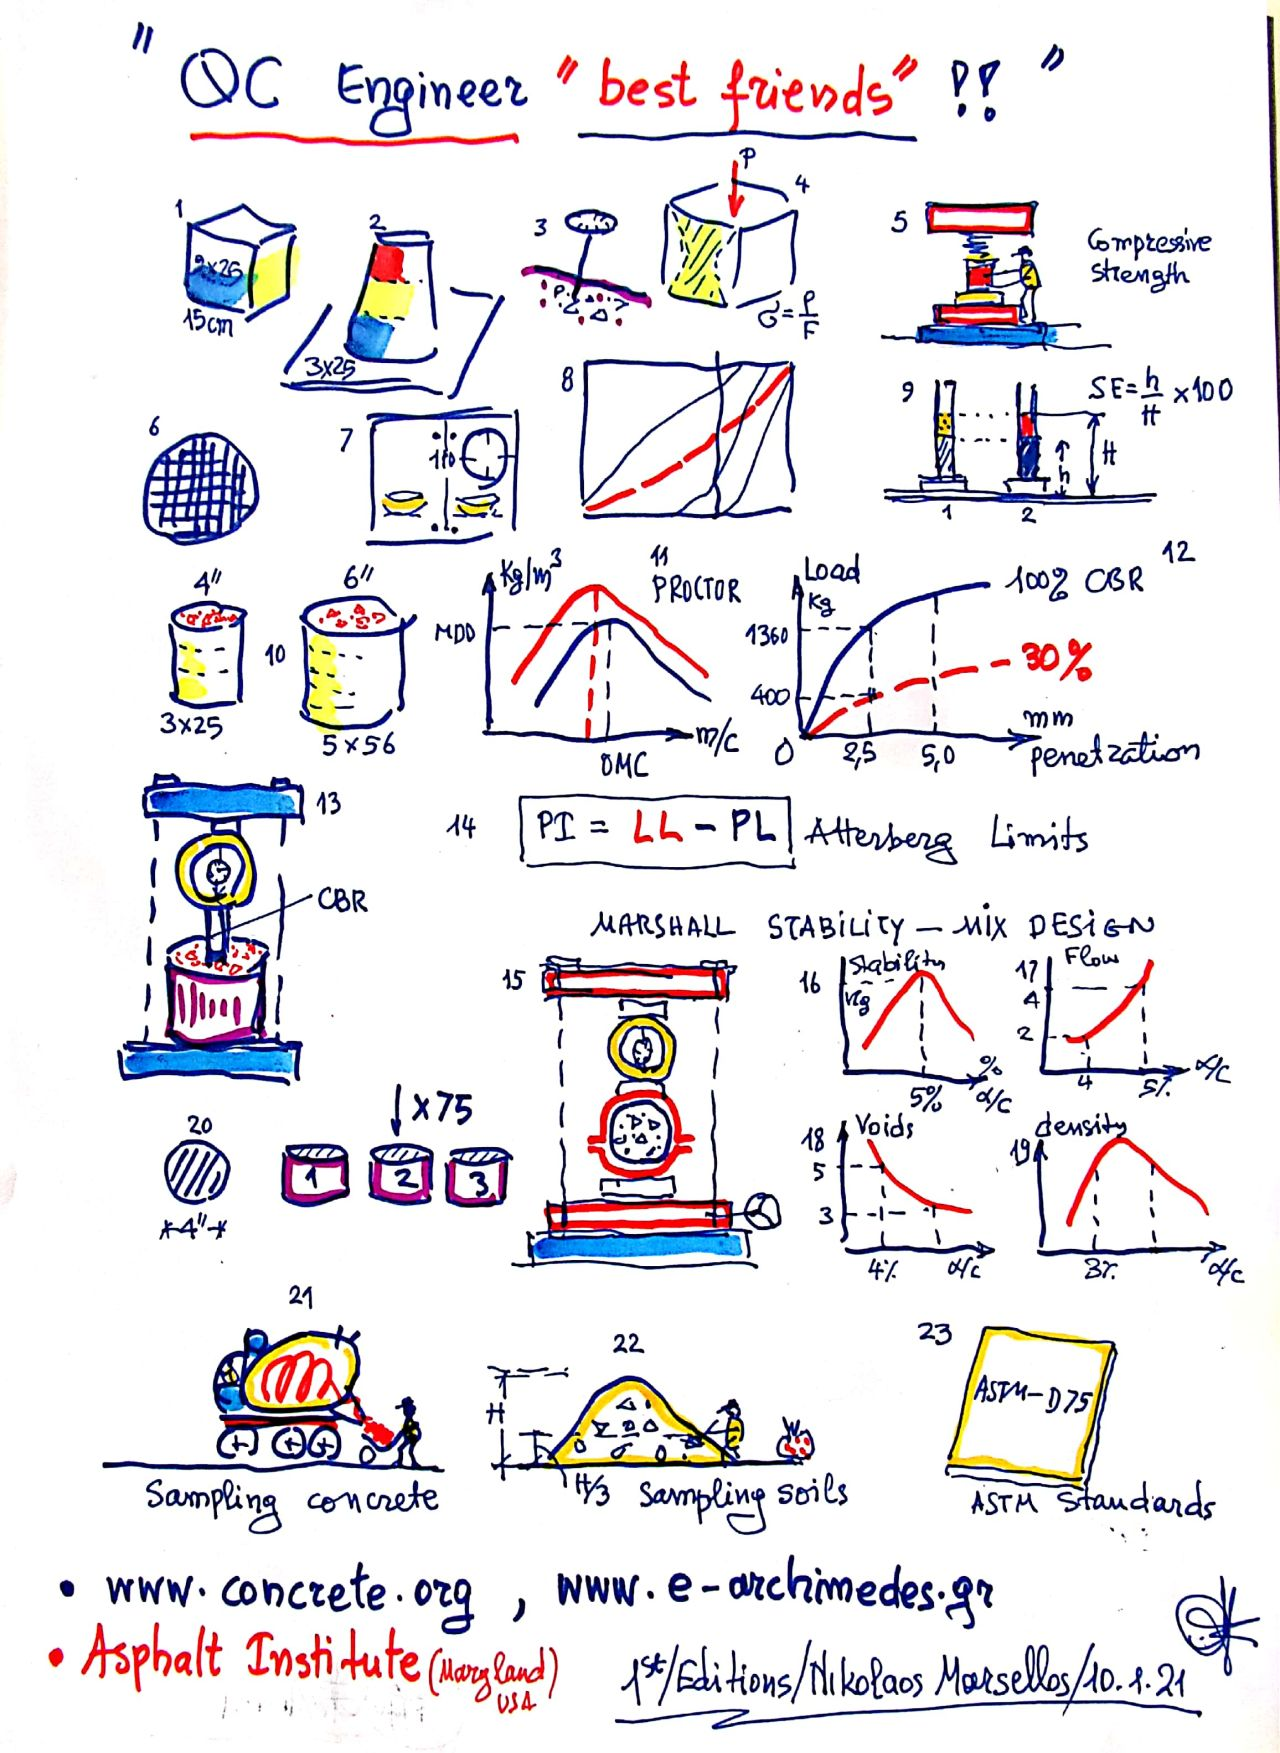 " QC Engineer "best friends" !! "
1
2x26
15cm
2
3x25
3
4
P
σ = P/F
5
Compressive
strength
6
7
8
9
SE = h/H x100
H
h
1 2
4"
3x25
10
6"
5x56
Kg/m³
11
PROCTOR
MDD
m/c
OMC
Load
Kg
12
100% CBR
1360
30%
400
0
2,5 5,0
mm
penetration
13
CBR
14
PI = LL - PL
Atterberg Limits
MARSHALL STABILITY - MIX DESIGN
15
16
Stability
Kg
%
5% a/c
17
Flow
4
2
4 5% a/c
18
Voids
5
3
4% a/c
19
density
3% a/c
20
4"
x75
1 2 3
21
Sampling concrete
22
H
H/3
Sampling soils
23
ASTM-D75
ASTM Standards
• www.concrete.org , www.e-archimedes.gr
• Asphalt Institute (Maryland)
USA
1st/Editions/Nikolaos Marsellos/10.1.21